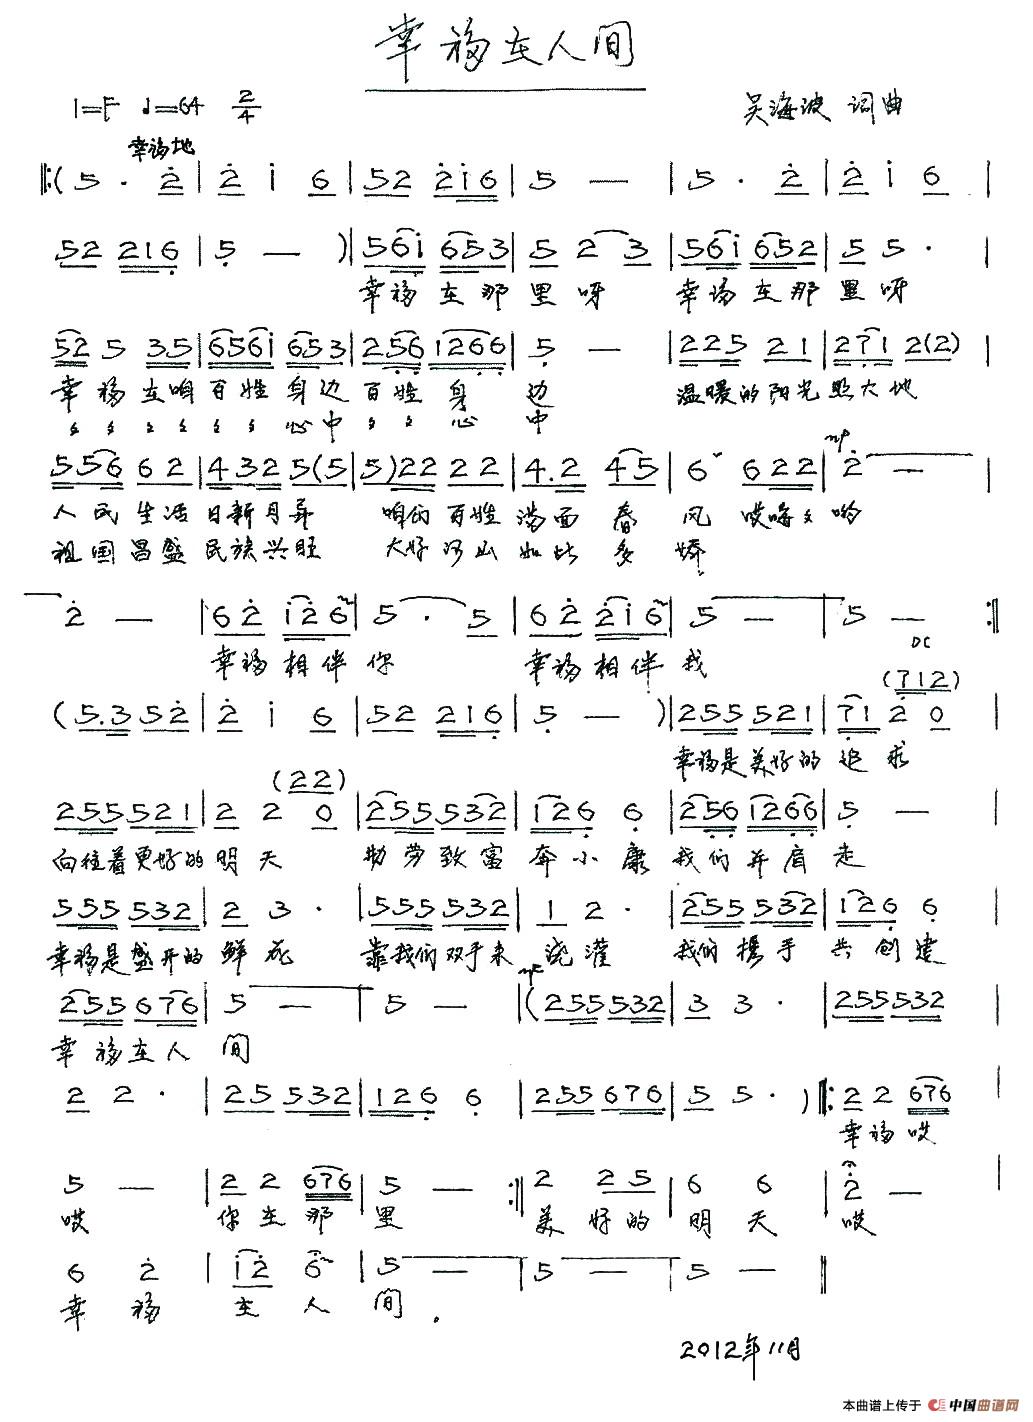 幸福在人间
1=F ♩=64 2/4
吴海波 词曲
幸福地
‖:( 5 · 2̇ | 2̇ i̇ 6 | 52 2̇i̇6 | 5 — | 5 · 2̇ | 2̇ i̇ 6 |
52 216 | 5 — ) | 56i̇ 653 | 5 2 3 | 56i̇ 652 | 5 5 · |
幸福在那里呀 幸福在那里呀
52 5 35 | 656i̇ 653 | 256 1266 | 5 — | 225 21 | 271 2(2) |
幸福在咱百姓身边百姓身边 温暖的阳光照大地
〃 〃 〃 〃 〃 〃 心中〃 〃 心中
556 62 | 432 5(5 | 5)22 22 | 4.2 45 | 6ˇ 622 | mp 2̇ — |
人民生活日新月异 咱们百姓满面春风 哎嗨〃哟
祖国昌盛民族兴旺 大好河山如此多娇
2̇ — | 62̇ i̇2̇6 | 5 · 5 | 62̇ 2̇i̇6 | 5 — | 5 — :‖
幸福相伴你 幸福相伴我
DC
(712)
( 5.3 52̇ | 2̇ i̇ 6 | 52 216 | 5 — ) | 255 521 | 71 2 0 |
幸福是美好的追求
(22)
255 521 | 2 2 0 | 255 532 | 126 6 | 256 1266 | 5 — |
向往着更好的明天 勤劳致富奔小康 我们并肩走
555 532 | 2 3 · | 555 532 | 1 2 · | 255 532 | 126 6 |
幸福是盛开的鲜花 靠我们双手来浇灌 我们携手共创建
255 676 | 5 — | 5 — | mf ( 255 532 | 3 3 · | 255 532 |
幸福在人间
2 2 · | 25 532 | 126 6 | 255 676 | 5 5 · ) ‖: 2 2 676 |
幸福哎
5 — | 2 2 676 | 5 — :‖ 2 25 | 6 6 | 2̇ — |
哎 你在那里 美好的明天哎
6 2̇ | i̇2̇ 6 | 5 — | 5 — | 5 — ‖
幸福在人间.
2012年11月
本曲谱上传于 中国曲谱网